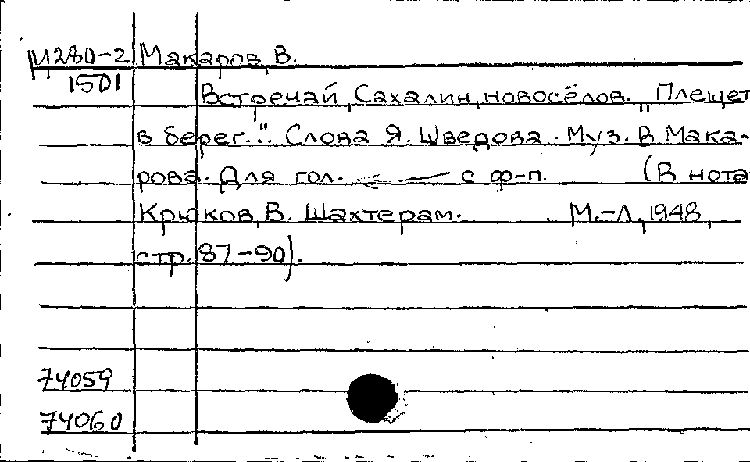 М280-2 Макаров, В.
1501
Встречай, Сахалин, новосёлов. „Плещет
в берег.." Слова Я. Шведова. Муз. В. Мака-
рова. Для гол. с ф-п. (В нота
Крюков, В. Шахтерам. М.-Л., 1948,
стр. 87-90).
74059
74060